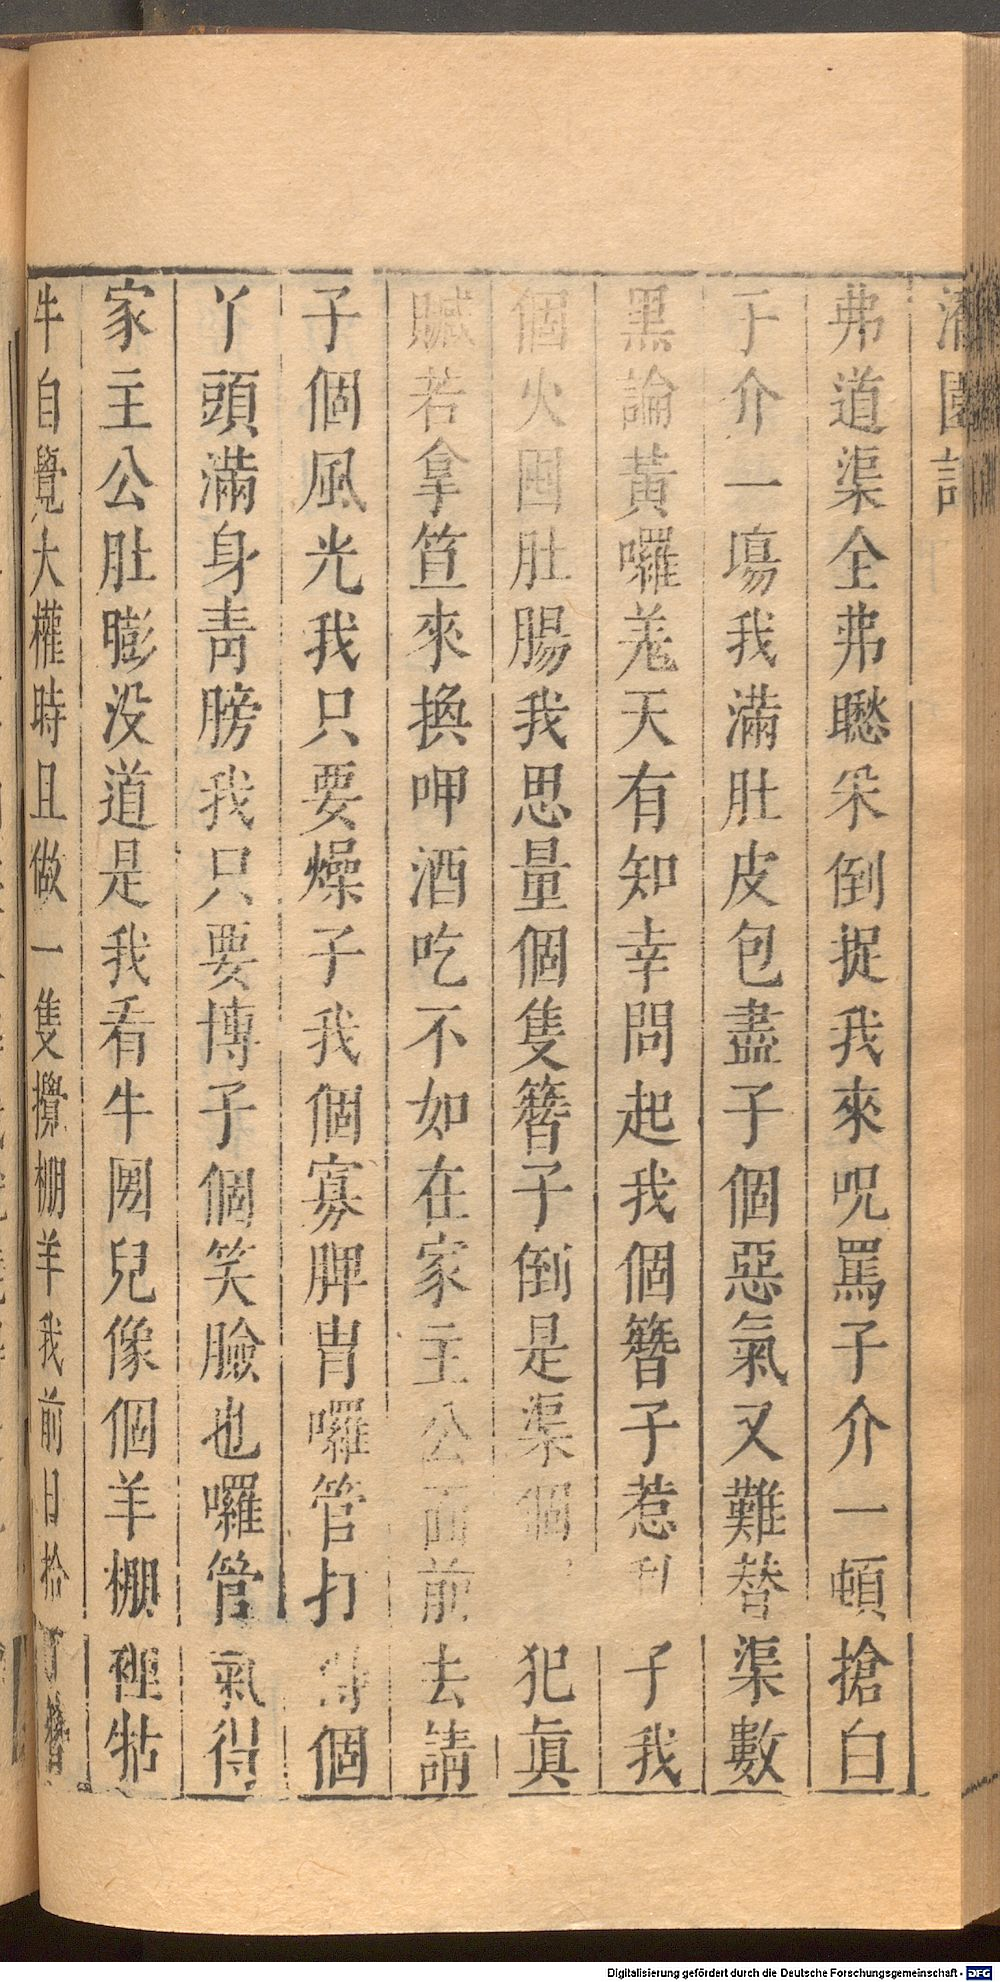 園記
弗道渠全弗聽釆倒捉我來呪罵子介一頓搶白
于介一塲我滿肚皮包盡子個惡氣又難替渠數
黑論黃囉羗天有知幸問起我個簪子惹子我
個火囤肚腸我思量個隻簪子倒是渠個犯眞
贓若拿笪來換呷酒吃不如在家主公面前去請
子個風光我只要燥子我個寡脾胃囉管打個
丫頭滿身靑膀我只要博子個笑臉也囉管氣得
家主公肚膨没道是我看牛囡兒像個羊棚裡牯
牛自覺大權時且做一隻攪棚羊我前日拾了簪
Digitalisierung gefördert durch die Deutsche Forschungsgemeinschaft - DFG